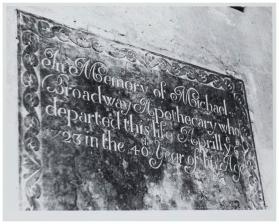 In Memory of Michael
Broadway Apothecary who
departed this life Aprill yᵉ
23 in the 40 Year of his Age